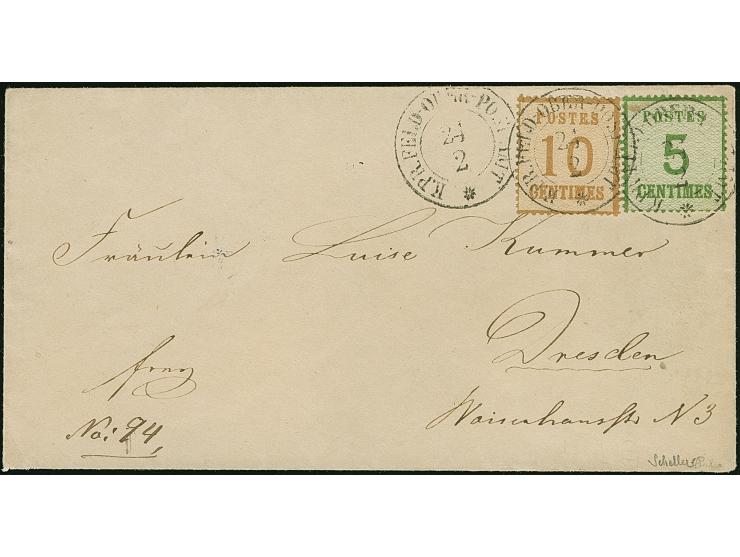 K.PR.FELD-OBER-POST-AMT
24
2
POSTES
10
CENTIMES
POSTES
5
CENTIMES
Fräulein Luise Kummer
Dresden
franco
Waisenhausstr N 3
No: 94,
Scheller